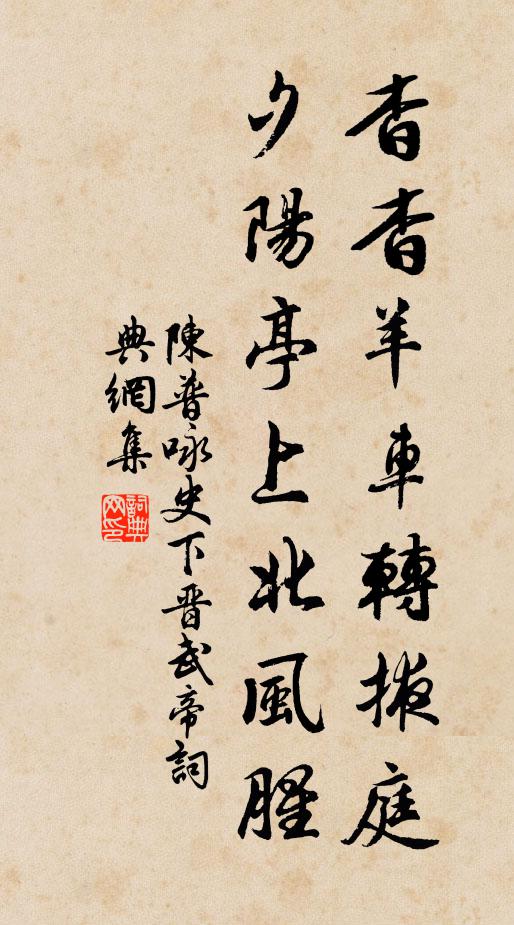 杳杳羊車轉掖庭
夕陽亭上北風腥
陳普咏史下晋武帝詞
典網集
詞典
网印